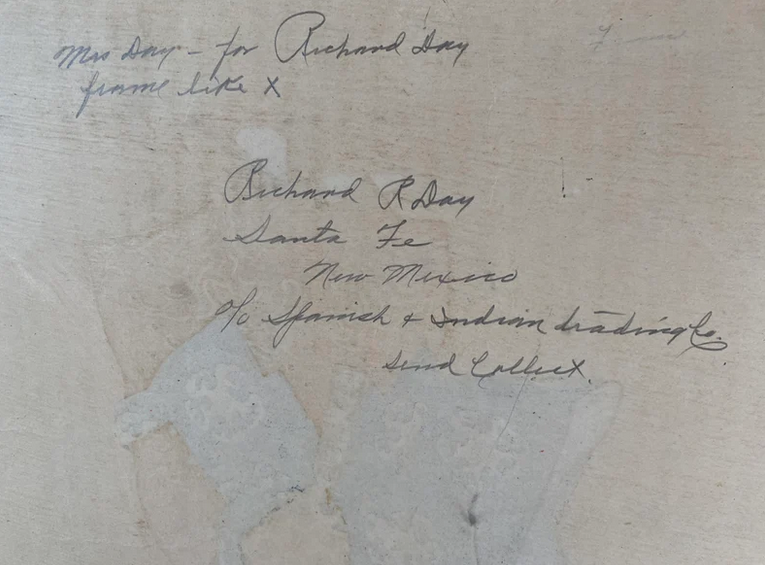 Mrs Day - for Richard Day
frame like X
Richard R Day
Santa Fe
New Mexico
c/o Spanish & Indian trading Co.
Send Collect.